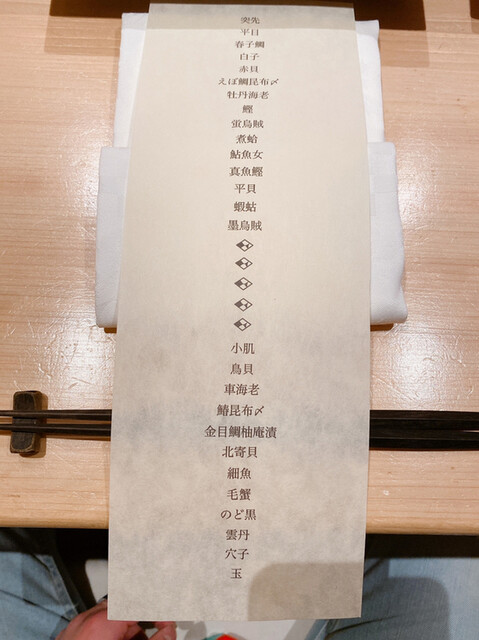 突先
平目
春子鯛
白子
赤貝
えぼ鯛昆布〆
牡丹海老
鰹
蛍烏賊
煮蛤
鮎魚女
真魚鰹
平貝
蝦蛄
墨烏賊
小肌
鳥貝
車海老
鰆昆布〆
金目鯛柚庵漬
北寄貝
細魚
毛蟹
のど黒
雲丹
穴子
玉